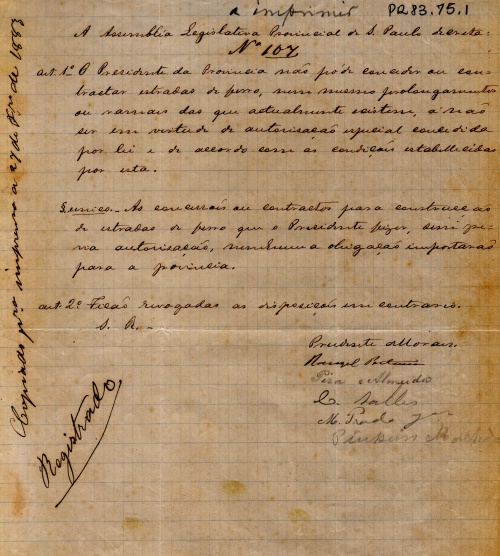 a imprimir
PR83.75.1
A Assembléa Legislativa Provincial de S. Paulo decreta:
Nº 107
art. 1º O Presidente da Provincia não póde conceder ou con-
tractar estradas de ferro, nem mesmo prolongamentos
ou ramaes das que actualmente existem, a não
ser em virtude de autorisação especial concedida
por lei e de accordo com as condições estabelecidas
por esta.
§ unico - As concessões ou contractos para construcção
de estradas de ferro que o Presidente fizer, sem pre-
via autorisação, nenhuma obrigação importarão
para a provincia.
art. 2º Ficão revogadas as disposições em contrario.
S. R. -
Prudente de Moraes.
Rangel Pestana
Piza e Almeida
C. Salles
M. Prado Jr
Martinho
Registrado
Copiado pra imprimir a 27 de 1883